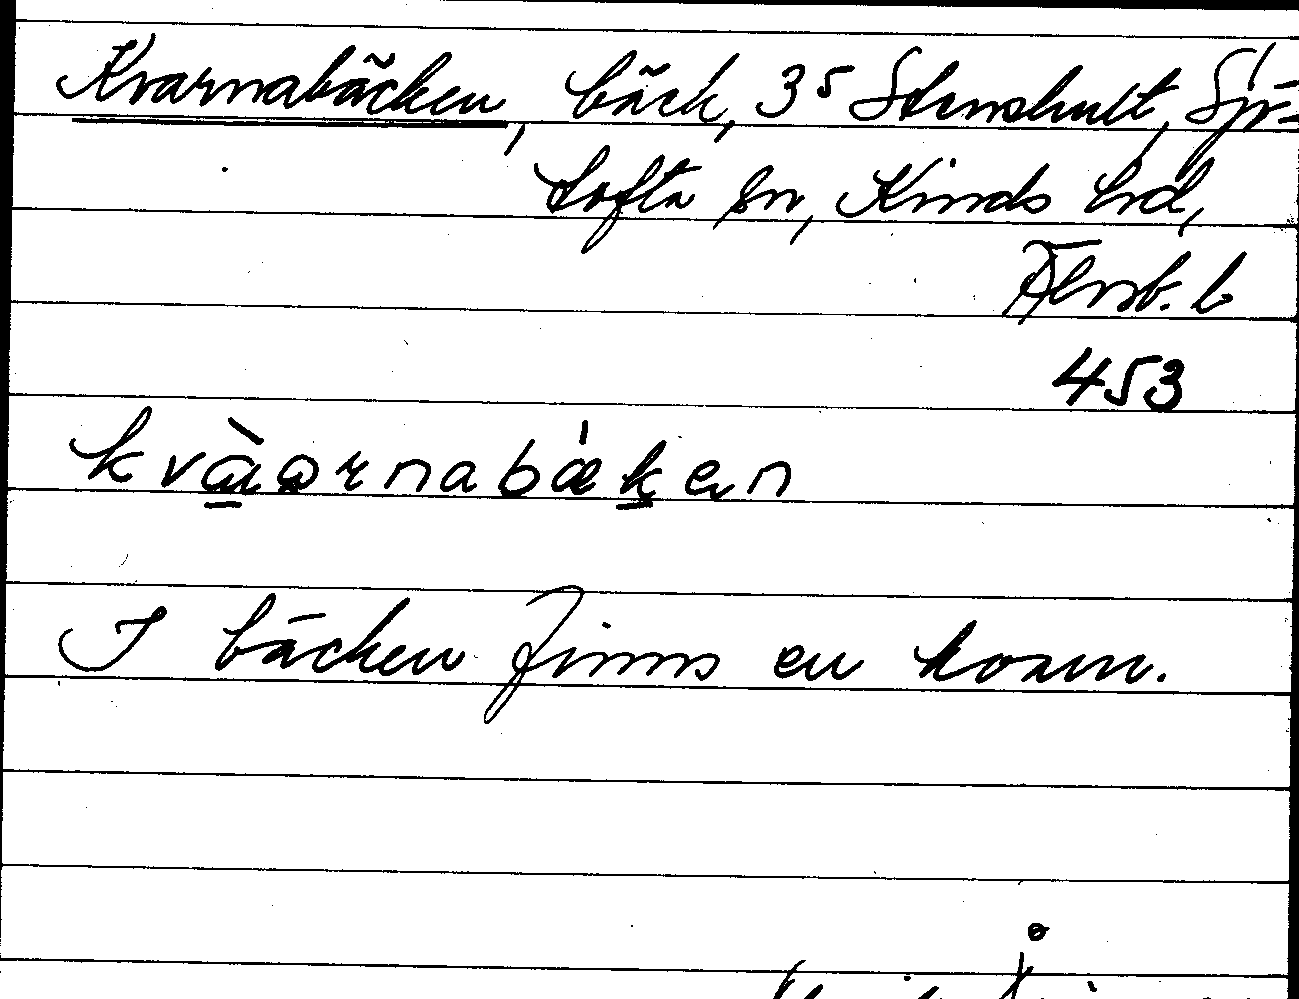 Kvarnabäcken, bäck, 3⁵ Stenshult, Sjö-
tofta sn, Kinds hd,
Älvsb. l
453
kvàornabæken
I bäcken finns en kvarn.